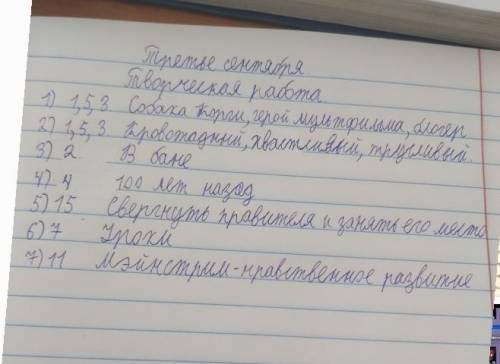 Третье сентября.
Творческая работа.
1) 1,5,3. Собака Корги, герой мультфильма, блогер
2) 1,5,3. Кровожадный, хвастливый, трусливый.
3) 2. В бане
4) 4 100 лет назад
5) 15. Свергнуть правителя и занять его место
6) 7 Уроки
7) 11 Мэйнстрим-нравственное развитие